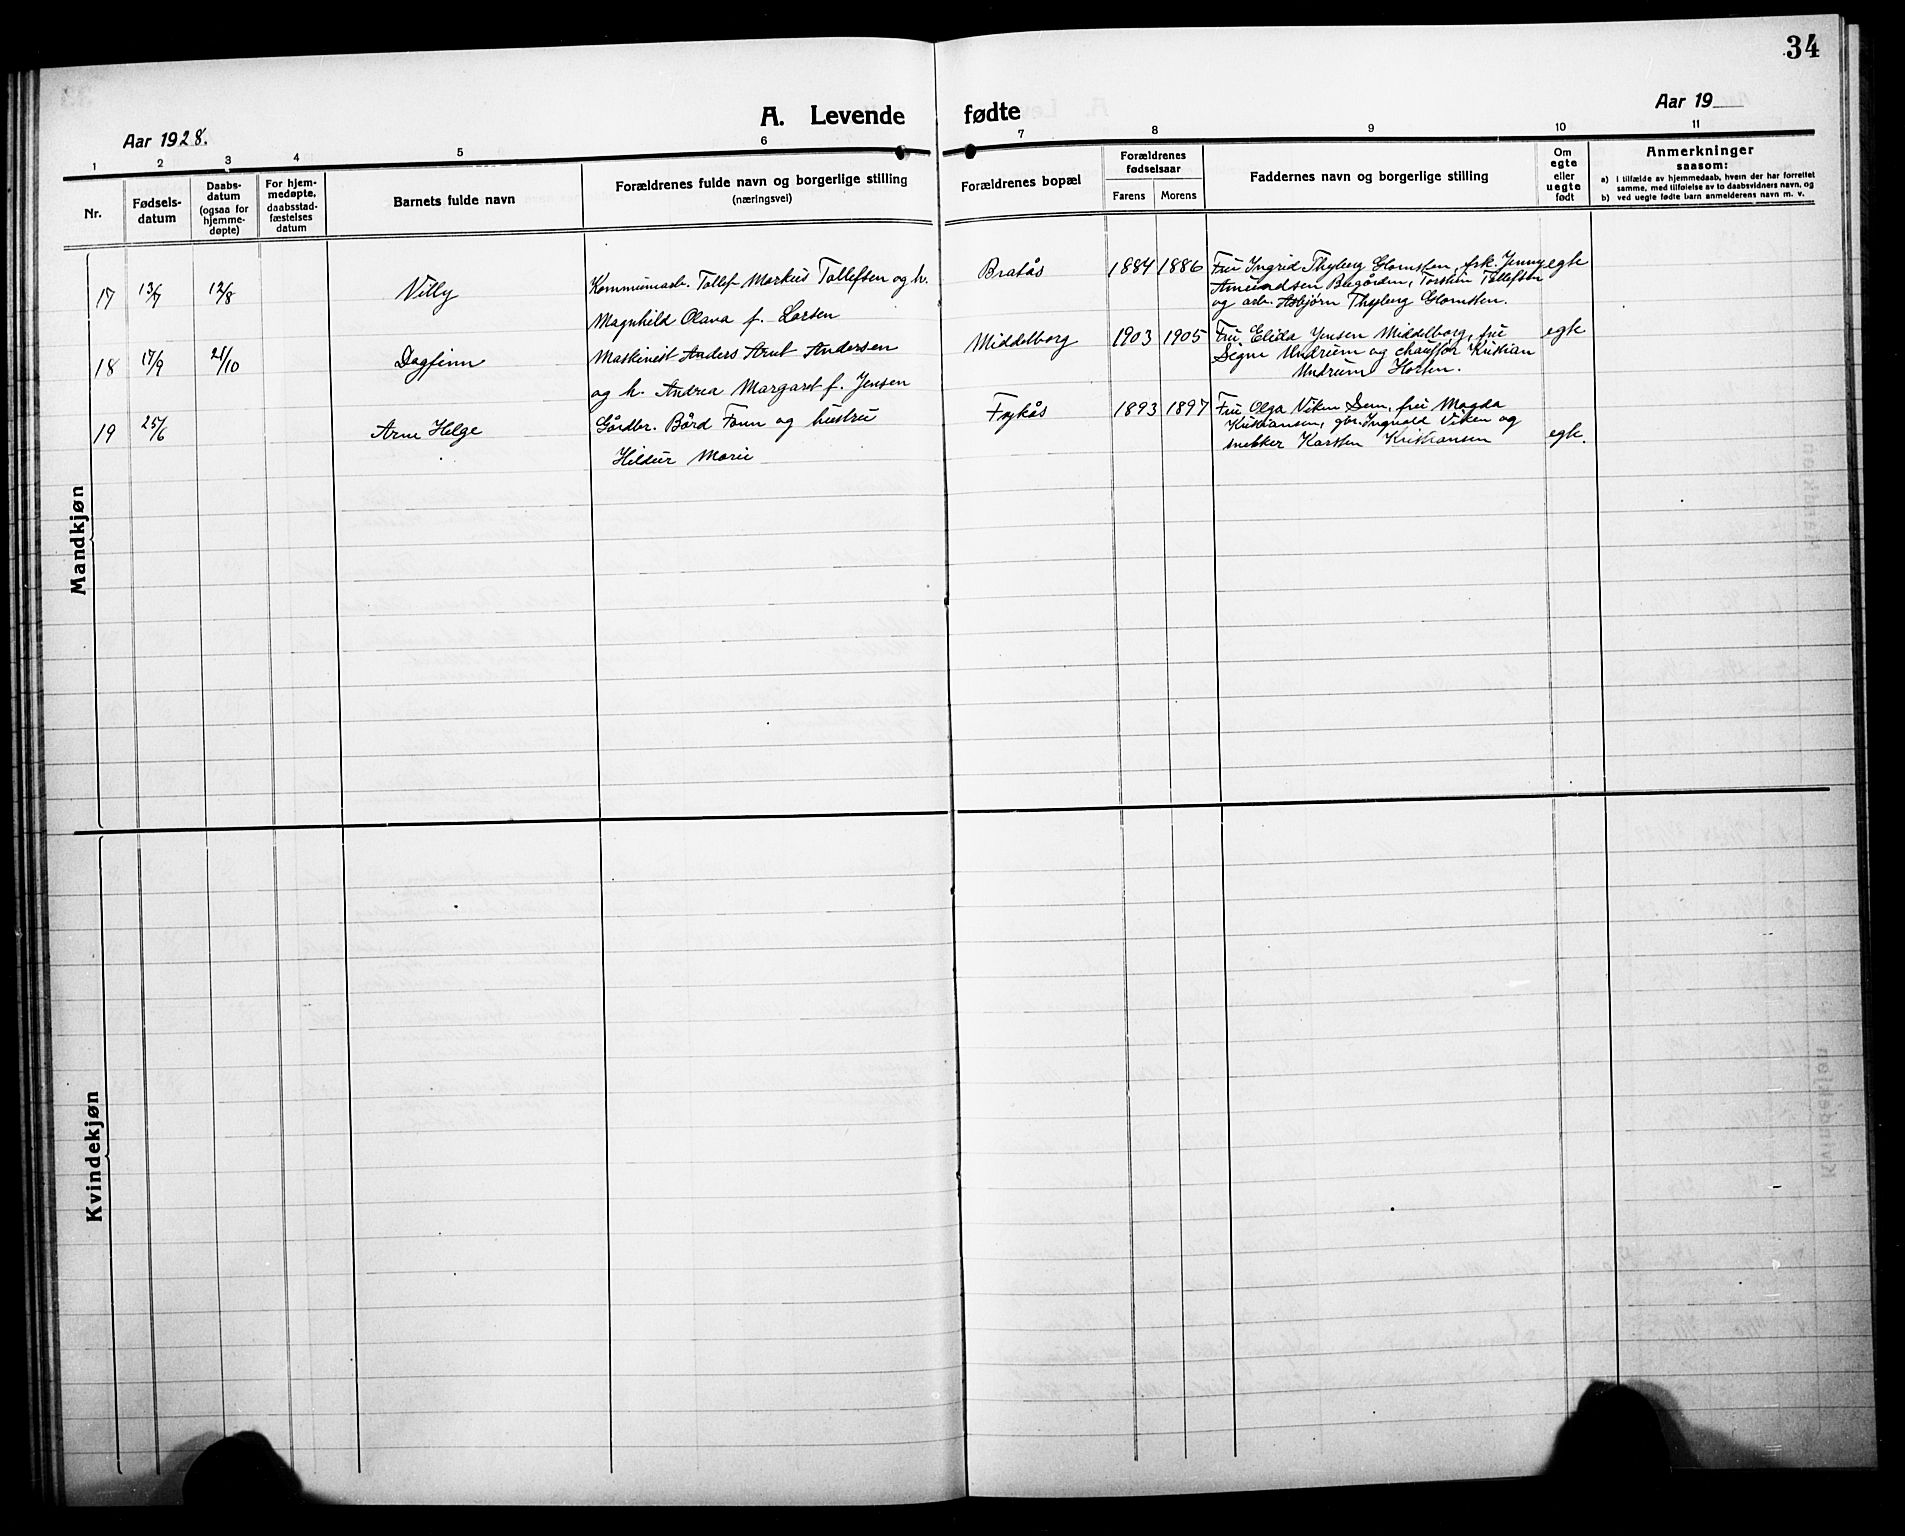 34
A. Levende fødte
Aar 1928.
Aar 19
1 2 3 4 5 6 7 8 9 10 11
Nr.
Fødsels-
datum
Daabs-
datum
(ogsaa for
hjemme-
døpte)
For hjem-
medøpte,
daabsstad-
fæstelses
datum
Barnets fulde navn
Forældrenes fulde navn og borgerlige stilling
(næringsvei)
Forældrenes bopæl
Forældrenes
fødselsaar
Farens Morens
Faddernes navn og borgerlige stilling
Om
egte
eller
uegte
født
Anmerkninger
saasom:
a) i tilfælde av hjemmedaab, hvem der har forrettet
samme, med tilføielse av to daabsvidners navn, og
b) ved uegte fødte barn anmelderens navn m. v.
Mandkjøn
17 13/7 12/8 Villy
Kommunearb. Tollef Markus Tollefsen og h.
Magnhild Olava f. Larsen
Bratås 1884 1886
Fru Ingrid Thyberg Glomsten, frk. Jenny
Amundsen Bugården, Torstein Tollefsen
og arb. Asbjørn Thyberg Glomsten.
egte
18 17/9 21/10 Dagfinn
Maskinist Anders Arnt Andersen
og h. Andrea Margaret f. Jensen
Middelborg 1903 1905
Fru Elida Jensen Middelborg, fru
Signe Undrum og chauffør Kristian
Undrum Horten.
egte
19 25/6 Arne Helge
Gårdbr. Bård Fonn og hustru
Hildur Marie
Frykås 1893 1897
Fru Olga Viken Sem, fru Magda
Kristiansen, gbr. Ingvald Viken og
snekker Karsten Kristiansen
egte.
Kvindekjøn